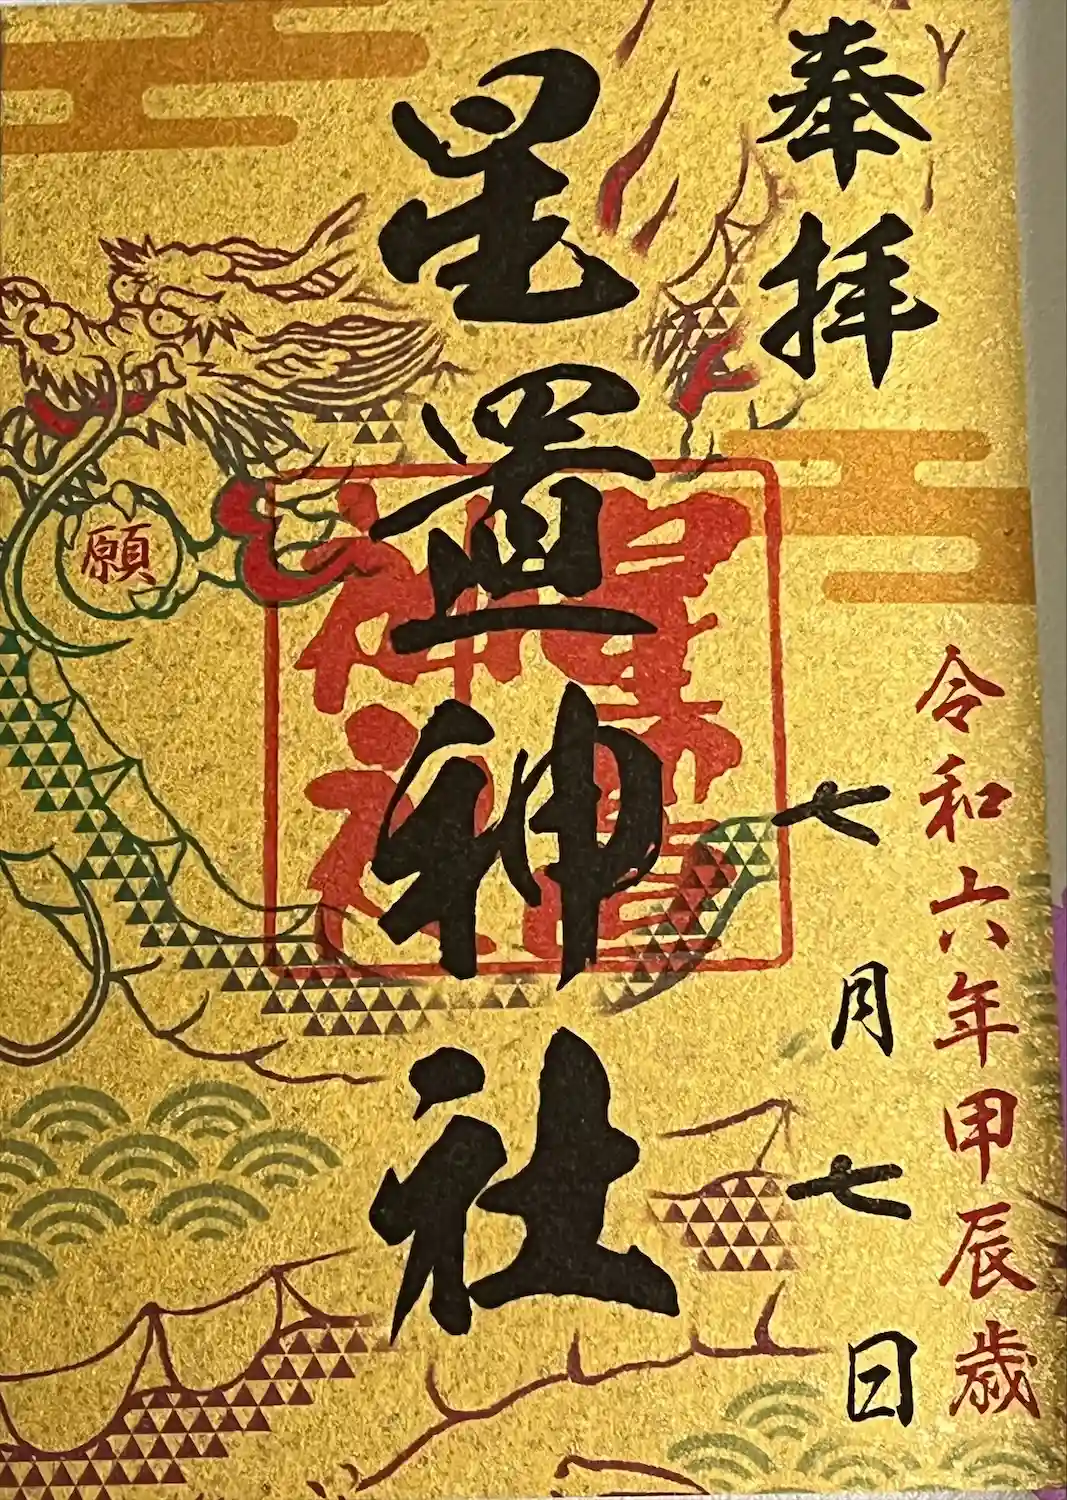 奉拝
令和六年甲辰歳
七月七日
星置神社
星置神社
願